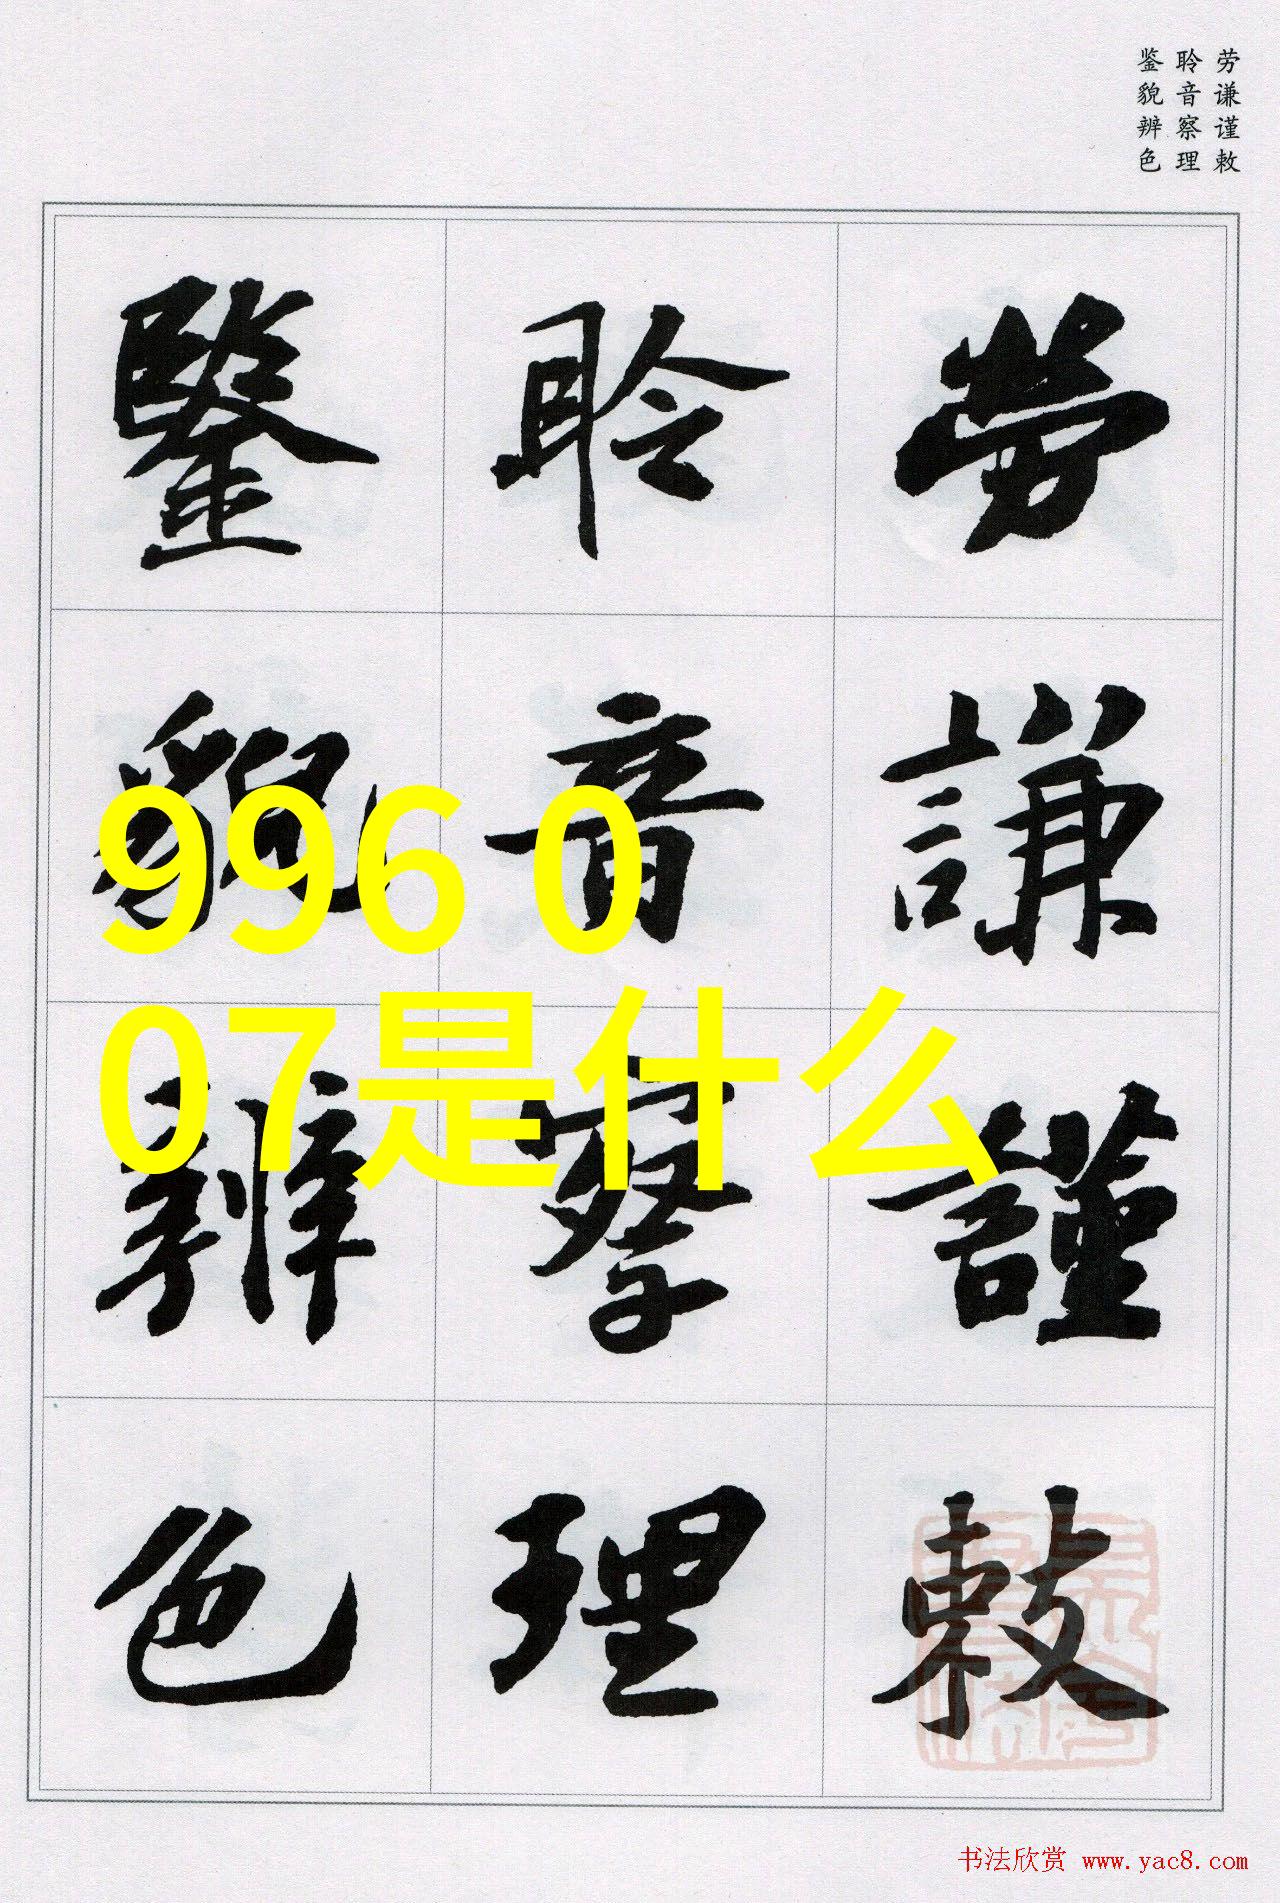 劳谦谨敕
聆音察理
鉴貌辨色
勞謙謹敕
聆音察理
鑒貌辨色
996 0
07是什么
书法欣赏 www.yac8.com